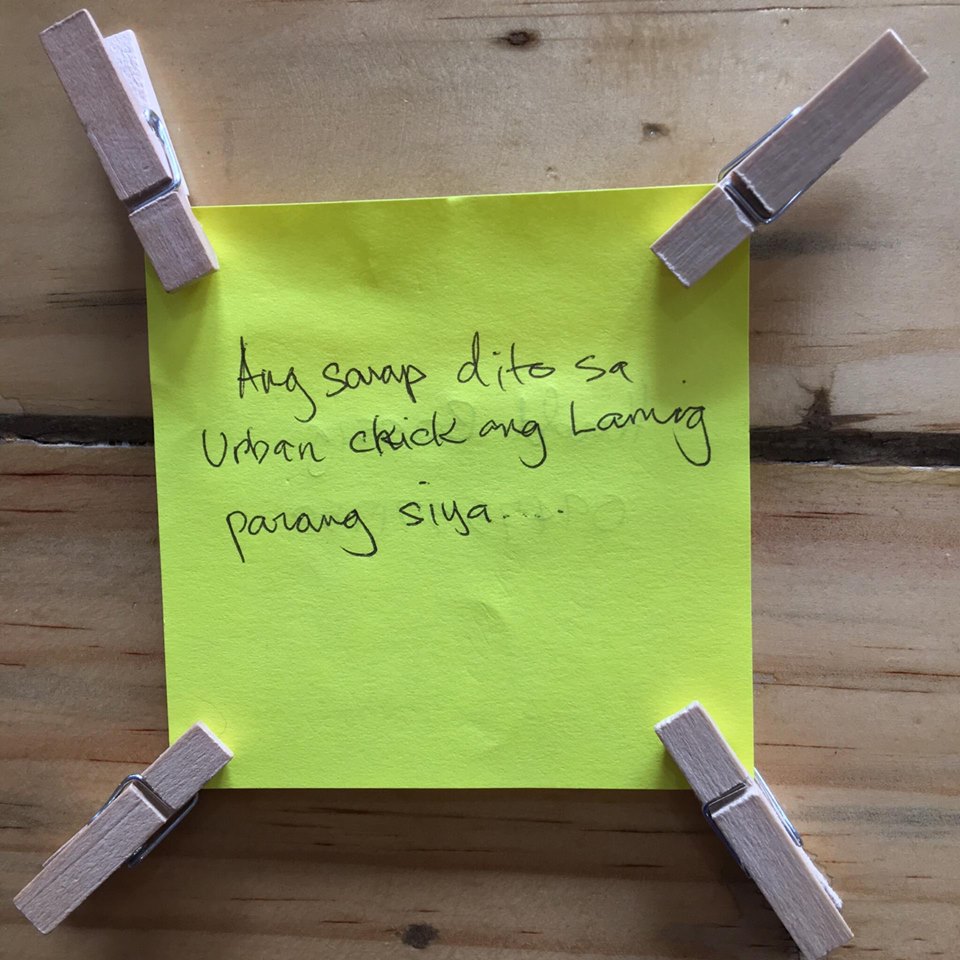 Ang sarap dito sa
Urban chick ang Lamig
parang siya....